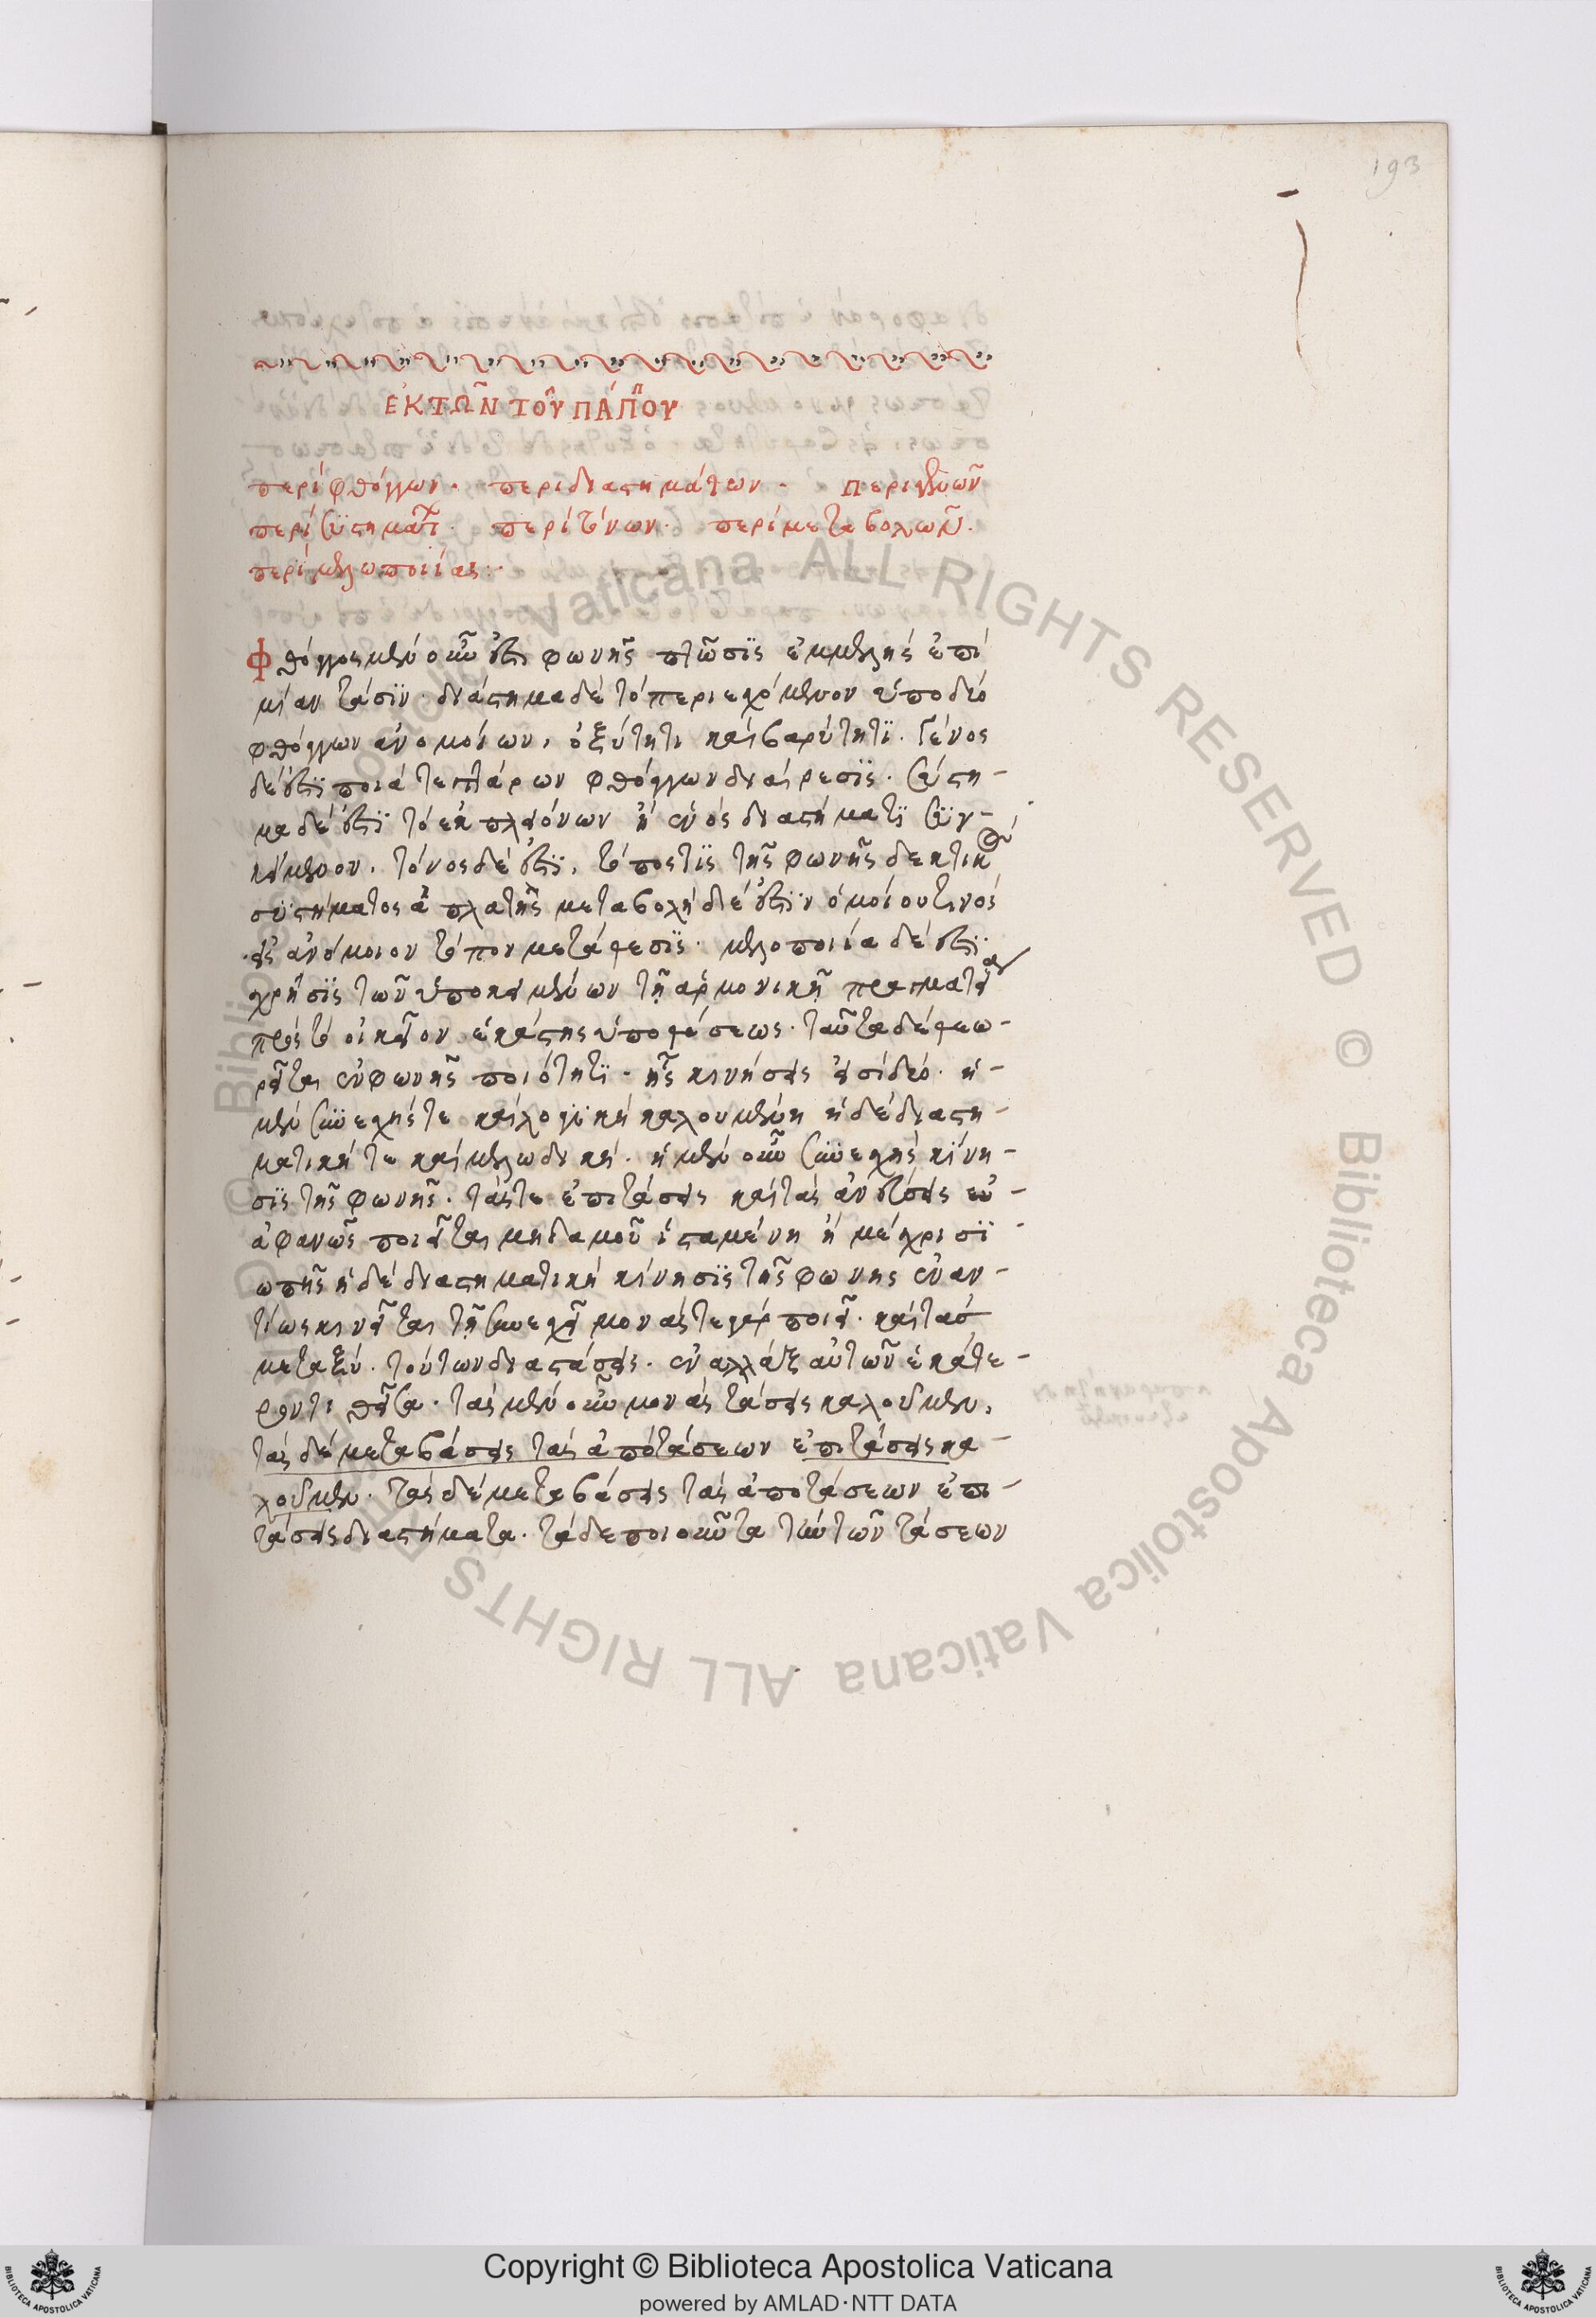 193
ἐκ τῶν τοῦ πάππου
περὶ φθόγγων. περὶ διαστημάτων. περὶ γενῶν
περὶ συστημάτ. περὶ τόνων. περὶ μεταβολῶν.
περὶ μελωποιίας:
Φθόγγος μὲν οὖν ἐστι φωνῆς πτῶσϊς ἐμμελὴς ἐπὶ
μίαν τάσϊν. διάστημα δὲ τὸ περιεχόμενον ὑπὸ δύο
φθόγγων ἀνομοίων, ὀξύτητι καὶ βαρύτητϊ. Γένος
δέ ἐστϊ ποιὰ τεττάρων φθόγγων διαίρεσϊς. σύστη-
μα δέ ἐστϊ τὸ ἐκ πλειόνων ἢ ἑνὸς διαστήματϊ συγ-
κείμενον. τόνος δέ ἐστϊ, τόπος τϊς τῆς φωνῆς δεκτικὸς
συστήματος ἀπλατὴς μεταβολὴ δέ ἐστϊν ὁμοίου τινὸς
εἰς ἀνόμοιον τόπον μετάθεσϊς. μελοποιία δέ ἐστϊ
χρῆσϊς τῶν ὑποκειμένων τῇ ἁρμονικῇ πραγματείᾳ
πρὸς τὸ οἰκεῖον ἑκάστης ὑποθέσεως. ταῦτα δὲ θεω-
ρεῖται ἐν φωνῆς ποιότητϊ. ἧς κινήσεις εἰσὶ δύο. ἡ
μὲν συνεχής τε καὶ λογϊκὴ καλουμένη ἡ δὲ διαστη-
ματική τε καὶ μελωδική. ἡ μὲν οὖν συνεχὴς κίνη-
σϊς τῆς φωνῆς. τάς τε ἐπιτάσεις καὶ τὰς ἀνέσεις
ἀφανῶς ποιεῖται μηδαμοῦ ἱσταμένη ἢ μέχρι σϊ
ωπῆς ἡ δὲ διαστηματικὴ κίνησϊς τῆς φωνης ἐναν-
τίως κινεῖται τῇ συνεχεῖ μονάς τε γὰρ ποιεῖ. καὶ τὰς
μεταξὺ. τούτων διαστάσεις. ἐναλλὰξ αὐτῶν ἑκάτε-
ρον τιθεῖσα. τὰς μὲν οὖν μονὰς τάσεις καλοῦμεν,
τὰς δὲ μεταβάσεις τὰς ἀπὸ τάσεων ἐπιτάσεις κα-
λοῦμεν. τὰς δὲ μεταβάσεις τὰς ἀπο τάσεων ἐπι-
τάσεις διαστήματα. τὰ δε ποιοῦντα τὴν τῶν τάσεων
Copyright © Biblioteca Apostolica Vaticana
powered by AMLAD·NTT DATA